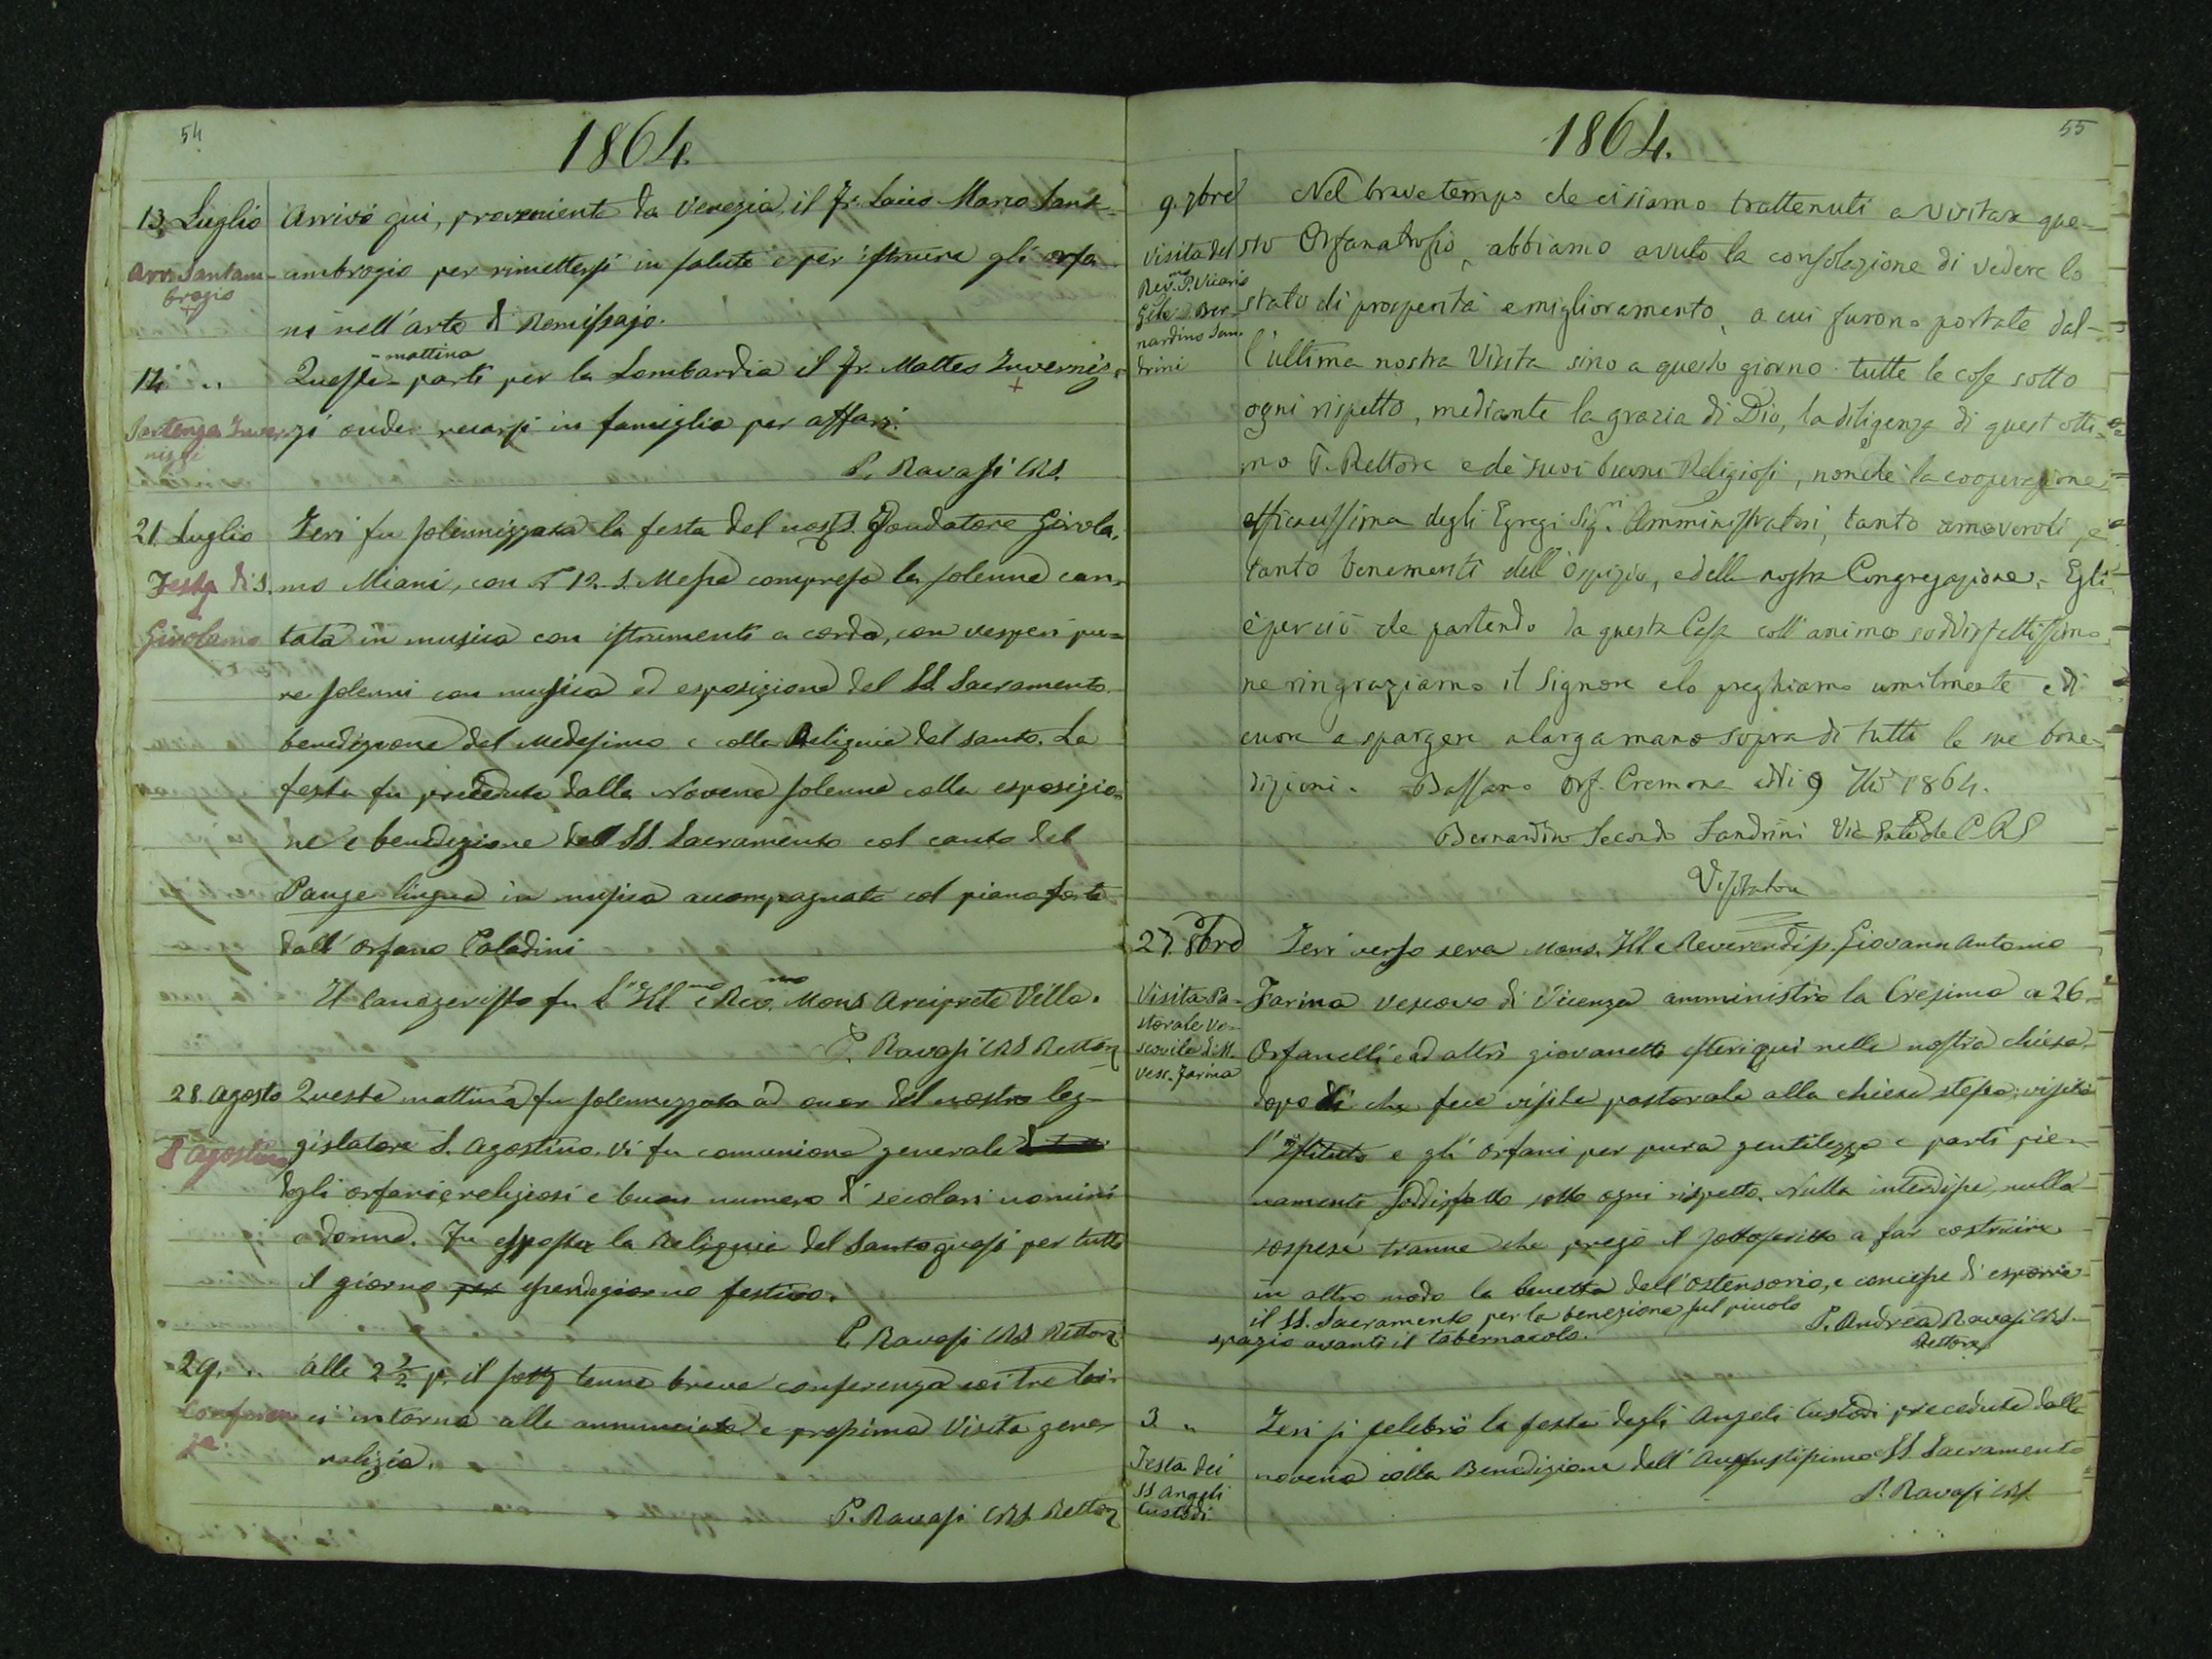 54
1864.
13. Luglio Arrivò qui, proveniente da Venezia, il Fr. Laico Marco Sant-
Arr. Santam- ambrogio per rimettersi in salute e per istruire gli orfa-
brogio
ni nell'arte di Remissajo.
14 " Questa mattina partì per la Lombardia il Fr. Matteo Inverniz-
Partenza Inver- zi onde recarsi in famiglia per affari.
nizzi
P. Ravasi CRS.
21. Luglio Ieri fu solennizzata la festa del nost. S. Fondatore Girola-
Festa di S. mo Miani, con N 12. S. Messe compresa la solenne can-
Girolamo tata in musica con istrumenti a corda, con vesperi pu-
re solenni con musica ed esposizione del SS. Sacramento
benedizione del Medesimo e colla Reliquia del santo. La
festa fu preceduta dalla Novena solenne colla esposizio-
ne e benedizione del SS. Sacramento col canto del
Pange lingua in musica accompagnata col pianoforte
dall'orfano Paladini
Il Panegerista fu l'Ill.mo e Rev.mo Mons Arciprete Villa.
P. Ravasi CRS Rettore
28. Agosto Questa mattina fu solennizzata ad onor del nostro leg-
S Agostino gislatore S. Agostino. Vi fu comunione generale
degli orfani e religiosi e buon numero di secolari uomini
e donne. Fu esposta la Reliquia del Santo quasi per tutto
il giorno per essendo giorno festivo.
P. Ravasi CRS Rettore
29. " Alle 2 1/2 p. il sott. tenne breve conferenza coi tre lai-
Conferen- ci intorno alla annunciata e prossima Visita gene-
za
ralizia.
P. Ravasi CRS Rettore
55
1864.
9. 7bre Nel breve tempo che ci siamo trattenuti a visitar que-
Visita del sto Orfanatrofio, abbiamo avuto la consolazione di vedere lo
Rev.mo P. Vicario
Gñle D. Ber- stato di prosperità e miglioramento, a cui furono portate dal-
nardino San-
drini l'ultima nostra Visita sino a questo giorno tutte le cose sotto
ogni rispetto, mediante la grazia di Dio, la diligenza di quest'otti-
mo P. Rettore e de' suoi buoni Religiosi, nonchè la cooperazione
efficacissima degli Egregi Sig.ri Amministratori, tanto amorevoli, e
tanto benemeriti dell'Ospizio, e della nostra Congregazione. Egli
è perciò che partendo da questa Casa coll'animo soddisfattissimo
ne ringraziamo il Signore e lo preghiamo umilmente e di
cuore a spargere a larga mano sopra di tutti le sue bene-
dizioni. Bassano Orf. Cremona addi 9 7bre 1864.
Bernardino Secondo Sandrini Vic. Gñle de CRS
Visitatore
27. 8bre Ieri verso sera Mons. Ill. e Reverendiss. Giovann Antonio
Visita Pa- Farina Vescovo di Vicenza amministrò la Cresima a 26
storale Ve-
scovile di M. Orfanelli e ad altri giovanetti esteri qui nella nostra chiesa.
Vesc. Farina
dopo di che fece visita pastorale alla chiesa stessa; visitò
l'Istituto e gli orfani per pura gentilezza e partì pie-
namente soddisfatto sotto ogni rispetto. Nulla interdisse, nulla
sospese tranne che pregò il sottoscritto a far costruire
in altro modo la lunetta dell'Ostensorio, e concesse di esporre
il SS. Sacramento per la benezione sul piccolo
spazio avanti il tabernacolo.
P. Andrea Ravasi CRS.
Rettore
3 " Ieri si celebrò la festa degli Angeli Custodi preceduta dalla
Festa dei novena colla Benedizione dell'Augustissimo SS. Sacramento
SS Angeli
Custodi
P. Ravasi CRS.